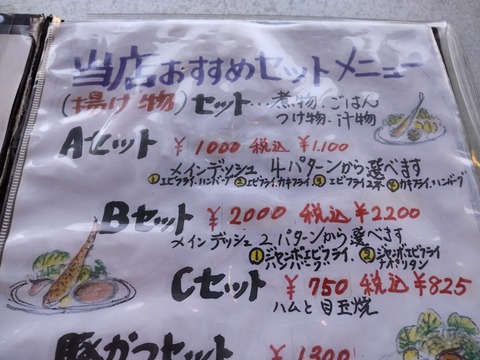 当店おすすめセットメニュー
(揚げ物)セット…煮物、ごはん
つけ物、汁物
Aセット ¥1000 税込 ¥1,100
メインデッシュ 4パターンから選べます
①エビフライ、ハンバーグ ②エビフライ、カキフライ ③エビフライ2本 ④カキフライ、ハンバーグ
Bセット ¥2000 税込 ¥2,200
メインデッシュ 2パターンから選べます
①ジャンボエビフライ、ハンバーグ ②ジャンボエビフライ ナポリタン
Cセット ¥750 税込 ¥825
ハムと目玉焼
豚かつセット ¥1300